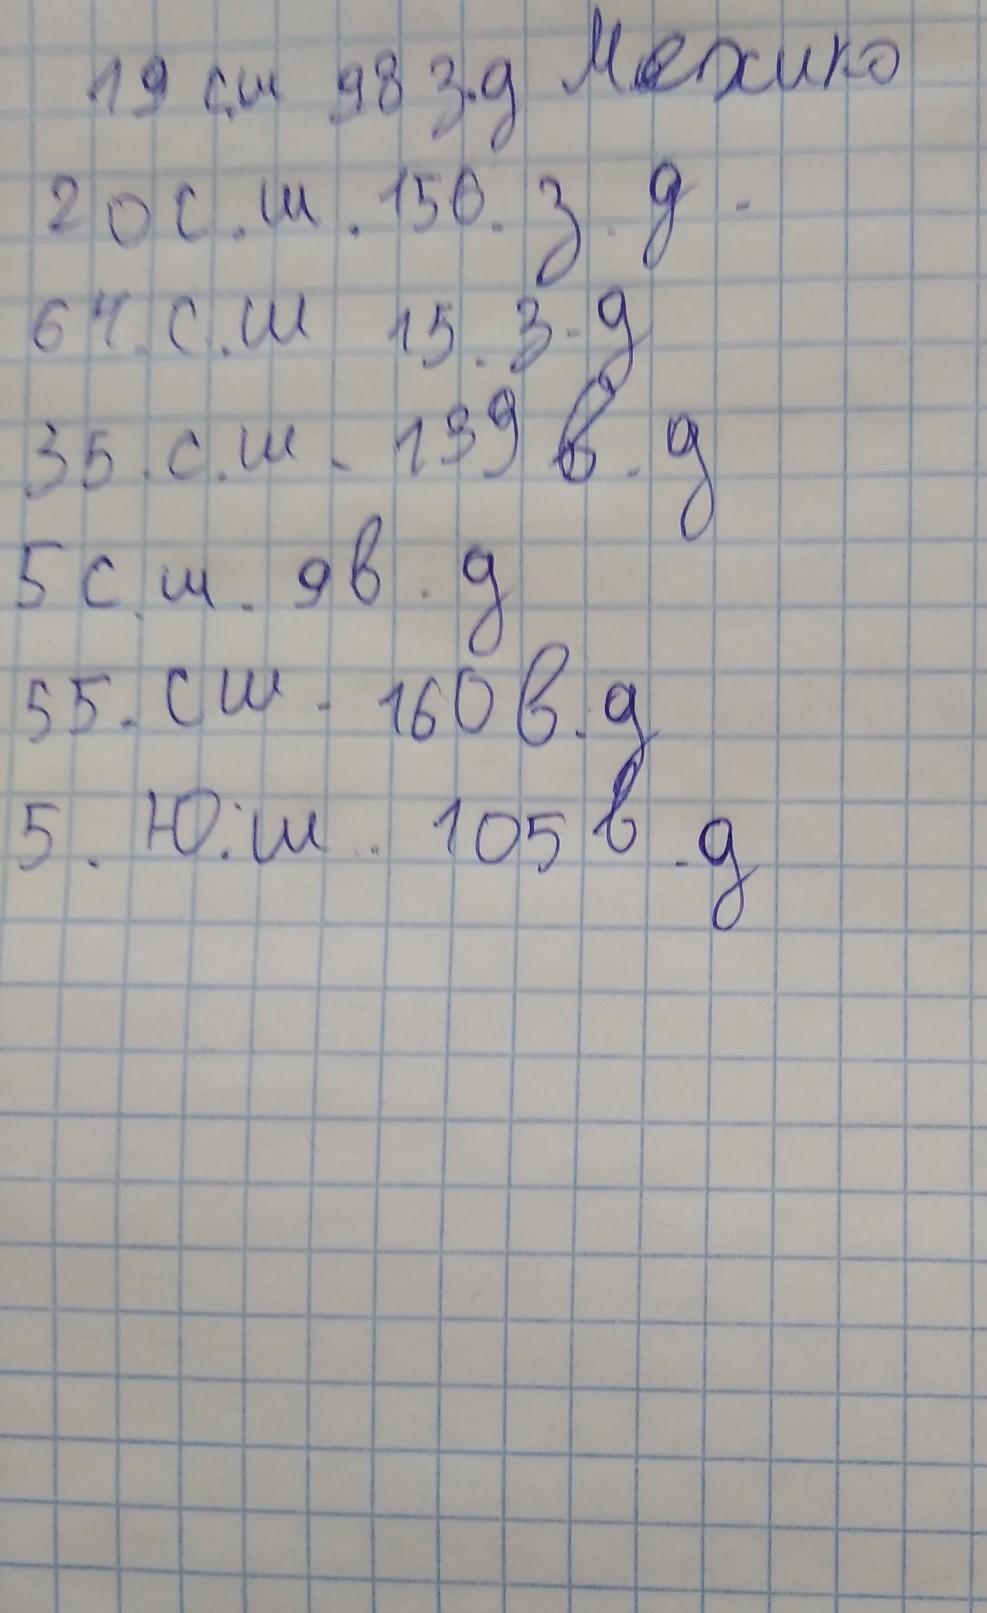 19 с.ш 98 з.д Мехико
20 с.ш. 156. з. д.
64. с.ш 15. з. д
35. с.ш. 139 в. д
5 с.ш. 9 в. д
55. сш. 160 в. д
5. Ю.ш. 105 в. д